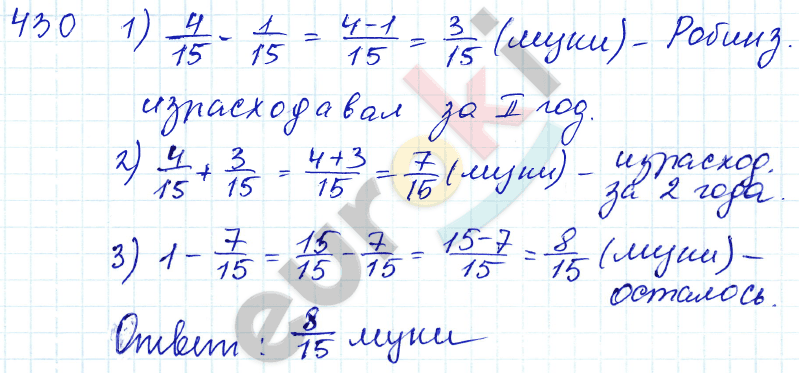 430 1) 4/15 - 1/15 = 4-1/15 = 3/15 (муки) - Робинз.
израсходавал за II год.
2) 4/15 + 3/15 = 4+3/15 = 7/15 (муки) - израсход.
за 2 года.
3) 1 - 7/15 = 15/15 - 7/15 = 15-7/15 = 8/15 (муки) -
осталось.
Ответ: 8/15 муки
euroki